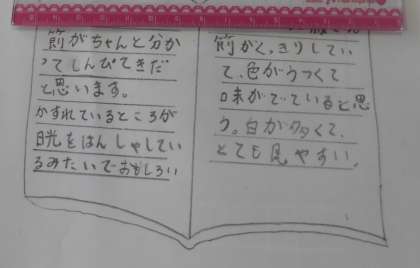 節がちゃんと分か
ってしんぴてきだ
と思います。
かすれているところが
日光をはんしゃしてい
るみたいでおもしろい
節がくっきりしてい
て、色がうつくて
味がでていると思
う。白が多くて、
とても見やすい。